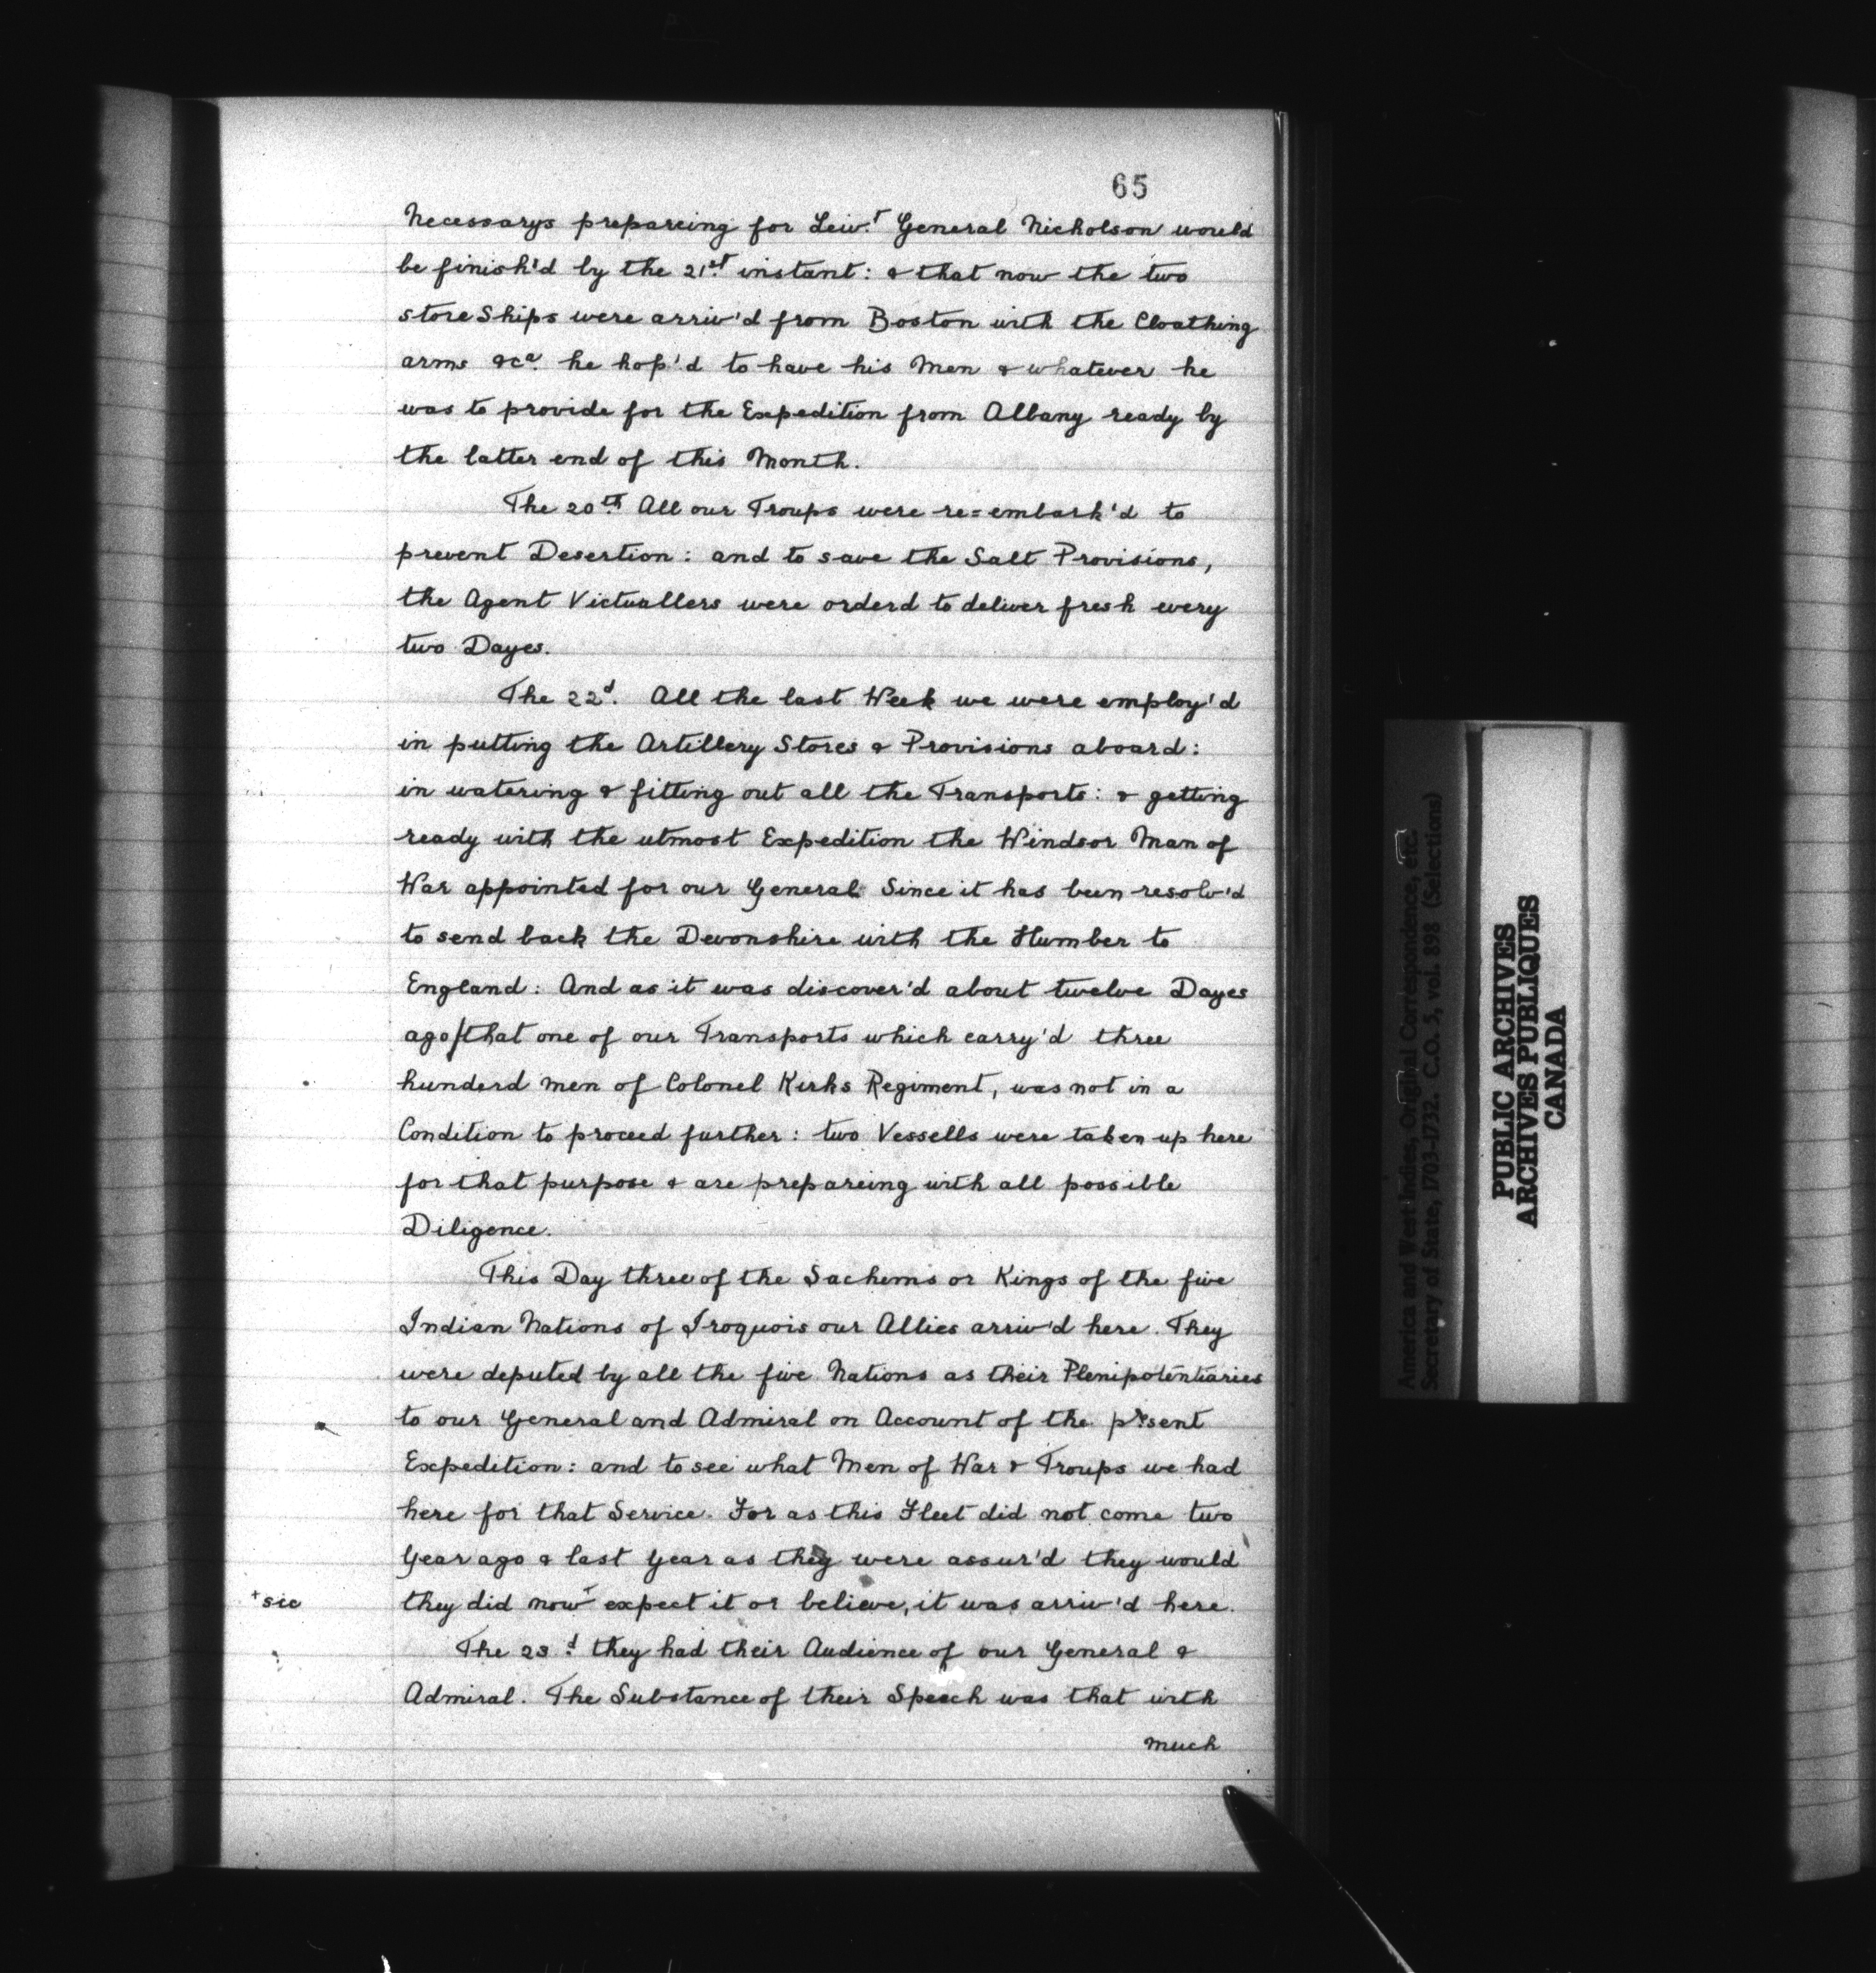 65
Necessarys prepareing for Leiv.t General Nicholson would
be finish'd by the 21st instant: & that now the two
store Ships were arriv'd from Boston with the Cloathing
arms &ca. he hop'd to have his Men & whatever he
was to provide for the Expedition from Albany ready by
the latter end of this Month.
The 20th All our Troups were re=embark'd to
prevent Desertion: and to save the Salt Provisions,
the Agent Victuallers were orderd to deliver fresh every
two Dayes.
The 22d. All the last Week we were employ'd
in putting the Artillery Stores & Provisions aboard:
in watering & fitting out all the Transports: & getting
ready with the utmost Expedition the Windsor Man of
War appointed for our General Since it has been resolv'd
to send back the Devonshire with the Humber to
England: And as it was discover'd about twelve Dayes
ago/that one of our Transports which carry'd three
hunderd men of Colonel Kirks Regiment, was not in a
Condition to proceed further: two Vessells were taken up here
for that purpose & are prepareing with all possible
Diligence.
This Day three of the Sachems or Kings of the five
Indian Nations of Iroquois our Allies arriv'd here. They
were deputed by all the five Nations as their Plenipotentiaries
to our General and Admiral on Account of the prsent
Expedition: and to see what Men of War & Troups we had
here for that Service. For as this Fleet did not come two
Year ago & last Year as they were assur'd they would
+sic they did now+ expect it or believe, it was arriv'd here.
The 23d they had their Audience of our General &
Admiral. The Substance of their Speech was that with
much
America and West Indies, Original Correspondence, etc.
Secretary of State, 1703-1732. C.O. 5, vol. 898 (Selections)
PUBLIC ARCHIVES
ARCHIVES PUBLIQUES
CANADA